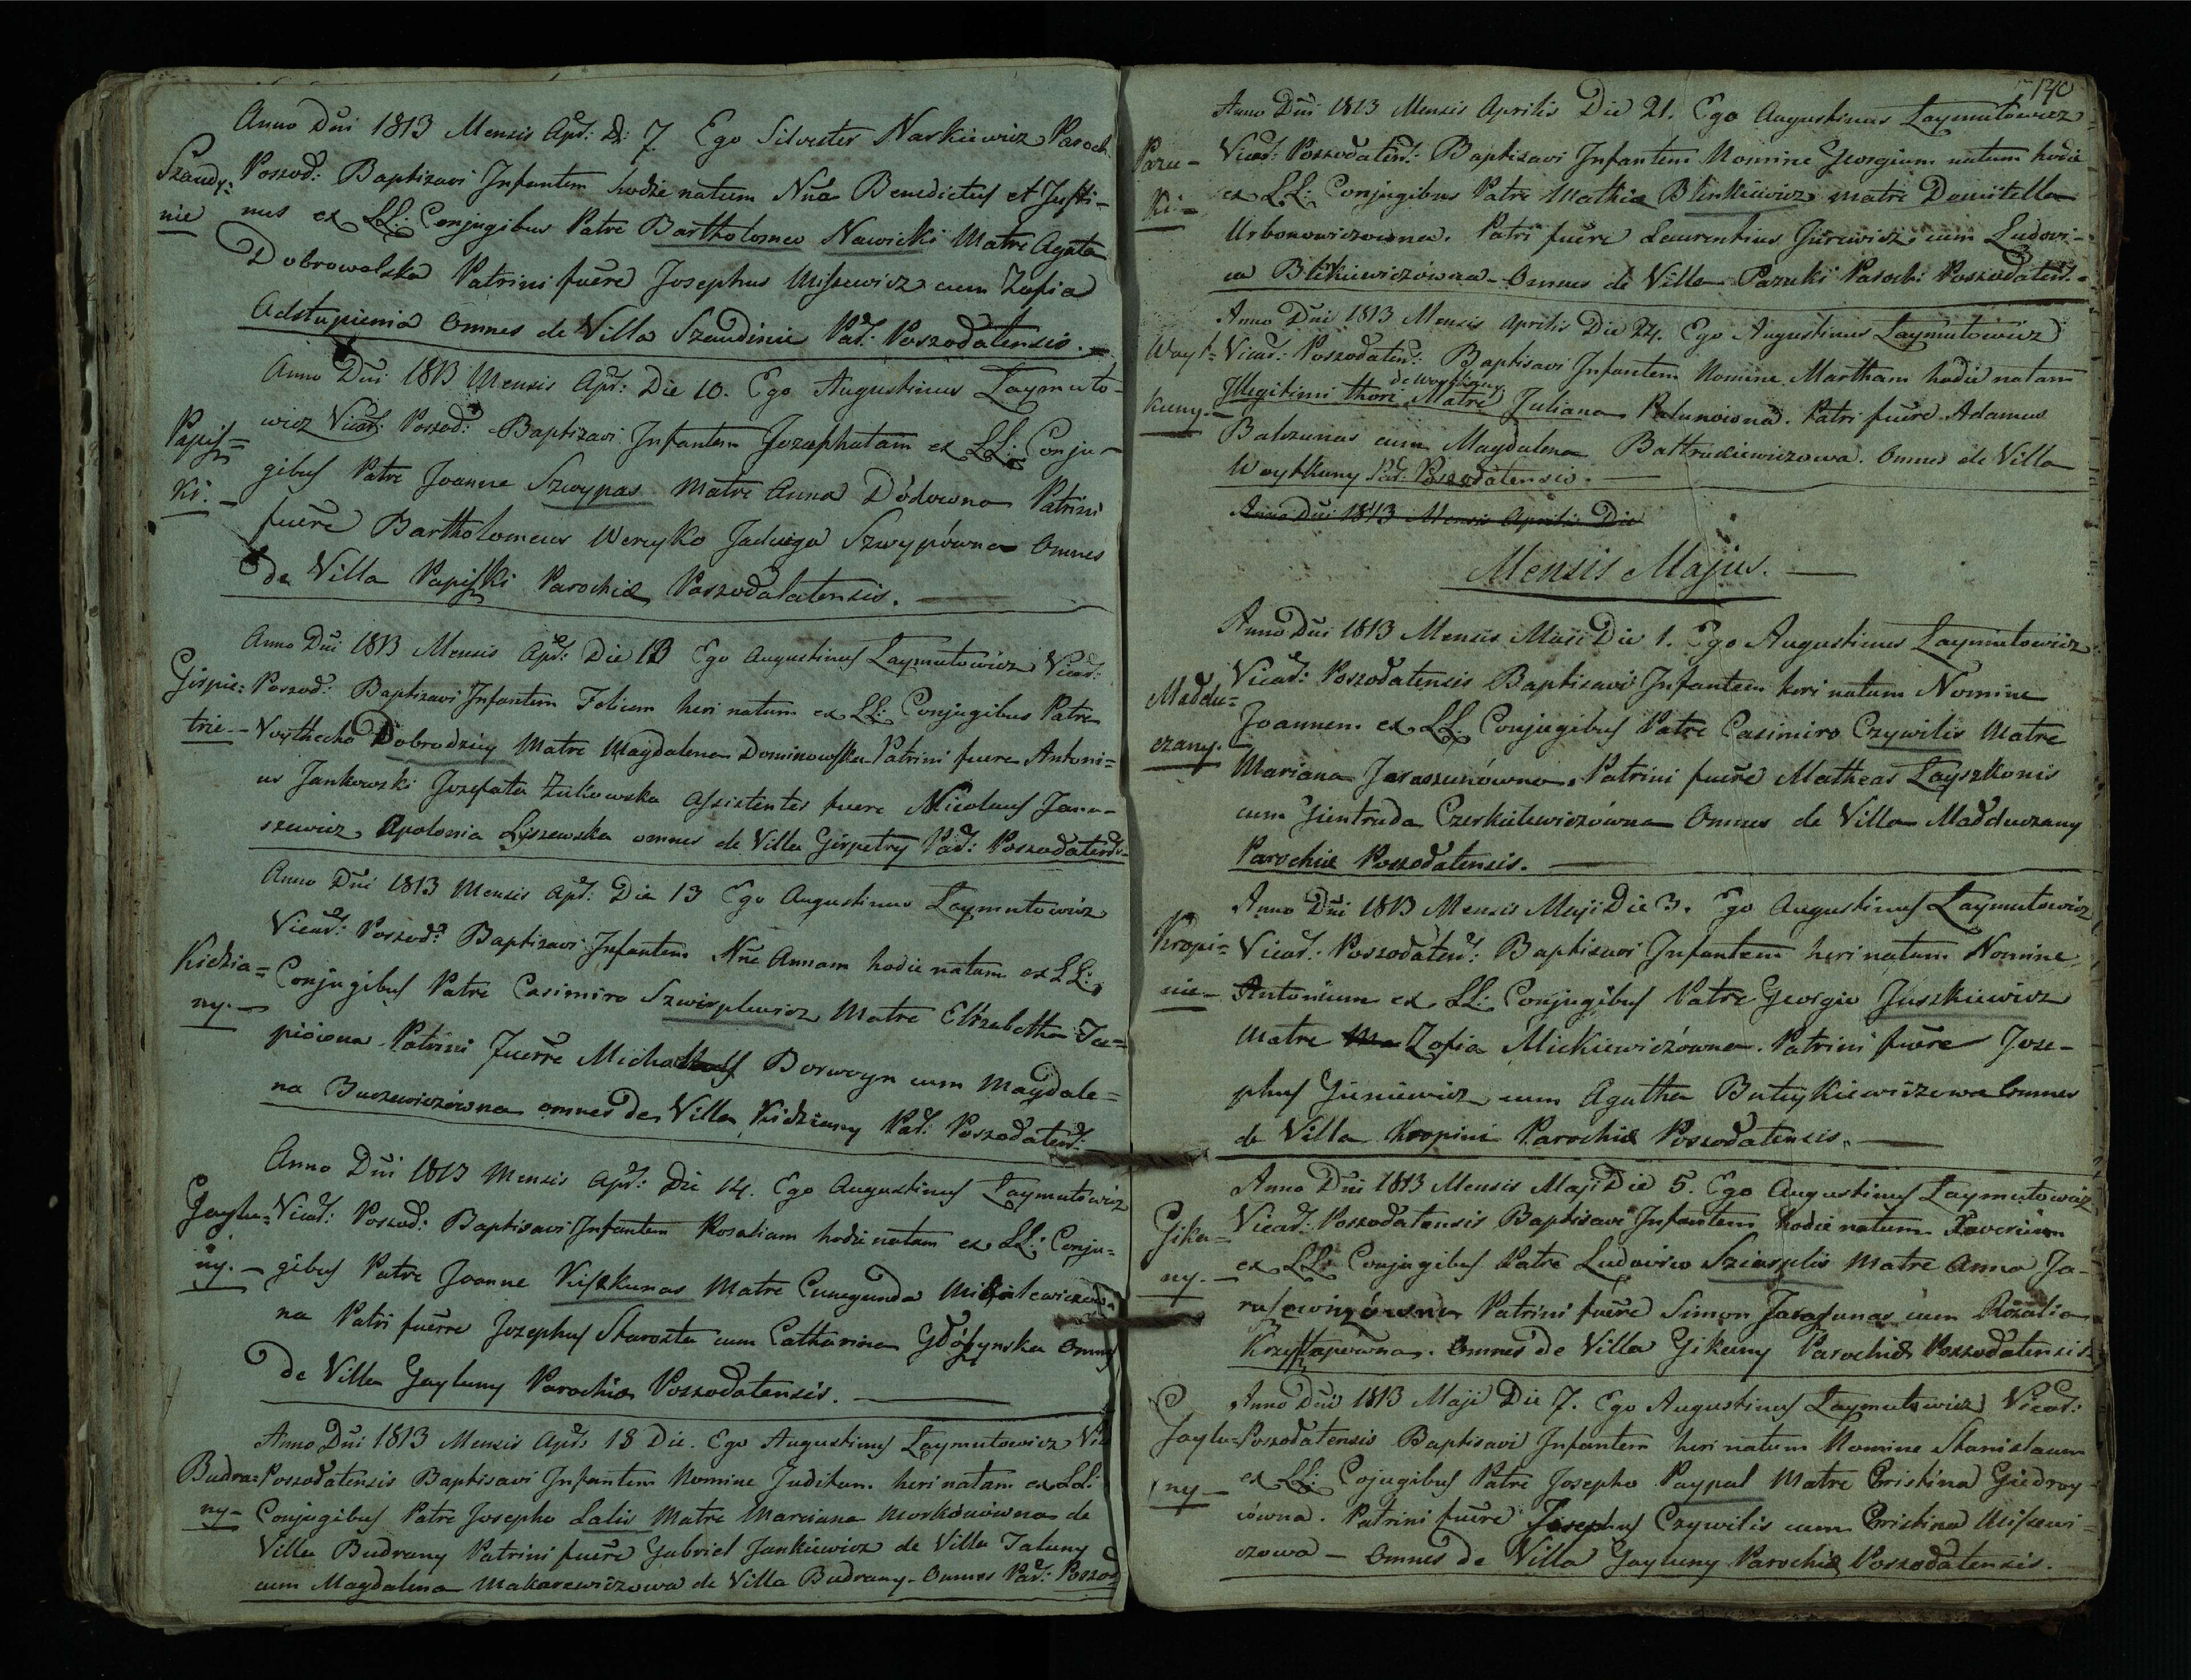 Anno Dni 1813 Mensis Apr: D: 7 Ego Silvester Narkiewicz Paroch.
Szaudy: Poszod: Baptizavi Infantem hodie natum Nne Benedictus et Justi-
nie nus ex LL: Conjugibus Patre Bartholomeo Nawicki Matre Agata
Dobrowolska Patrini fuere Josephus Missewicz cum Zofia
Adstupienia Omnes de Villa Szaudinie Par: Poszodatensis.
Anno Dni 1813 Mensis Apr: Die 10. Ego Augustinus Laymuto-
wicz Vicar: Poszod: Baptizavi Infantem Jozaphatam ex LL: Conju-
Papisz=
gibus Patre Joanne Szwypas Matre Anna Dódowna Patrini
ki. - fuere Bartholomeus Wercyko Jadwiga Szwypówna Omnes
de Villa Papiszki Parochiæ Poszodalatensis.
Anno Dni 1813 Mensis Apr: Die 13 Ego Augustinus Laymutowicz Vicar:
Girpie= Poszod: Baptizavi Infantem Felicem heri natum ex LL: Conjugibus Patre
trie - Voythecho Dobrodziey Matre Magdalena Dominowska Patrini fuere Antoni=
us Jankowski Jozefata Żukowska Assistentes fuere Nicolaus Janu-
szewicz, Apolonia Lyszewska omnes de Villa Girpetry Par: Poszodatens-
Anno Dni 1813 Mensis Apr: Die 13 Ego Augustinus Laymutowicz
Vicar: Poszod: Baptizavi Infantem Nne Annam hodie natam ex LL:
Kidzia= Conjugibus Patre Casimiro Szwirplewicz Matre Elizabetha
ny. - Patrini fuerre Borwoyn cum Magdale=
na Buczewiczówna omnes de Villa Kidziany Par: Poszodaten:
Anno Dni 1813 Mensis Apr: Die 14. Ego Augustinus Laymutowicz
Gaylu= Vicar: Poszod: Baptisavi Infantem Rosaliam hodie natam ex LL: Conju=
ny. - gibus Patre Joanne Kuszkunas Matre Cunegunda
na Patri fuerre Jozephus Starosta cum Catharina Omnes
de Villa Gayluny Parochiæ Poszodatensis.
Anno Dni 1813 Mensis Apr: 18 Die. Ego Augustinus Laymutowicz Vic
Budra= Poszodatensis Baptisavi Infantem Nomine Juditam heri natam ex LL:
ny- Conjugibus Patre Josepho Lalis Matre Marciana Morkónówna de
Villa Budrany Patrini fuere Gabriel Jankiewicz de Villa Jaluny
cum Magdalena Makarewiczowa de Villa Budrany. Omnes Par: Poszod
190
Anno Dni 1813 Mensis Aprilis Die 21. Ego Augustinus Laymutowicz
Pazu- Vicar: Poszodaten: Baptisavi Infantem Nomine Georgium natum hodie
ki= ex LL: Conjugibus Patre Mathia Blinkiewicz matre Domitella
Urbonowiczowna. Patri fuere Laurentius Gurewicz cum Ludovi-
ca Blikiewiczówna - Omnes de Villa Pazuki Paroch: Poszodaten.
Anno Dni 1813 Mensis Aprilis Die 24. Ego Augustinus Laymutowicz
Woyt= Vicar: Poszodaten: Baptisavi Infantem Nomine Martham hodie natam
de Woytkuny
kuny.- Illegitimi thori Matre Juliana Palunowna. Patri fuere Adamus
Balszunas cum Magdalena Battrukiewiczowa. Omnes de Villa
Woytkuny Par: Poszodatensis.
Anno Dni 1813 Mensis Aprilis Die
Mensis Majus.
Anno Dni 1813 Mensis Maii Die 1. Ego Augustinus Laymutowicz
Maddu= Vicar: Poszodatensis Baptisavi Infantem heri natum Nomine
Joannem ex LL: Conjugibus Patre Casimiro Czywilis Matre
czany. Mariana Jaraszunówna. Patrini fuere Matheas Layszkonis
cum Gientruda Czerkielewiczówna Omnes de Villa Madduczany
Parochiæ Poszodatensis.
Anno Dni 1813 Mensis Maji Die 3. Ego Augustinus Laymutowicz
Kropi= Vicar: Poszodaten: Baptisavi Infantem heri natum Nomine
nie- Antonium ex LL: Conjugibus Patre Georgio Juszkiewicz
Matre Zofia Mickiewiczówna. Patrini fuere Jose-
phus Juniewicz cum Agatha Butrykiewiczowa Omnes
de Villa Kropini Parochiæ Poszodatensis.
Anno Dni 1813 Mensis Maji Die 5. Ego Augustinus Laymutowicz
Gika= Vicar: Poszodatensis Baptisavi Infantem hodie natum Xaverium
ny. - ex LL: Conjugibus Patre Ludovico Szwirplis Matre Anna Ja-
rusewiczówna Patrini fuere Simon Jaraszunas cum Rozalia
Krzysztapowna. Omnes de Villa Gikany Parochiæ Poszodatensis
Anno Dni 1813 Maji Die 7. Ego Augustinus Laymutowicz Vicar:
Gaylu= Poszodatensis Baptisavi Infantem heri natum Nomine Stanislaum
ny - ex LL: Cojugibus Patre Josepho Paypal Matre Cristina Giedroy-
ciówna. Patrini fuere Josephus Czywilis cum Cristina Missewi=
czowa - Omnes de Villa Gayluny Parochiæ Poszodatensis.